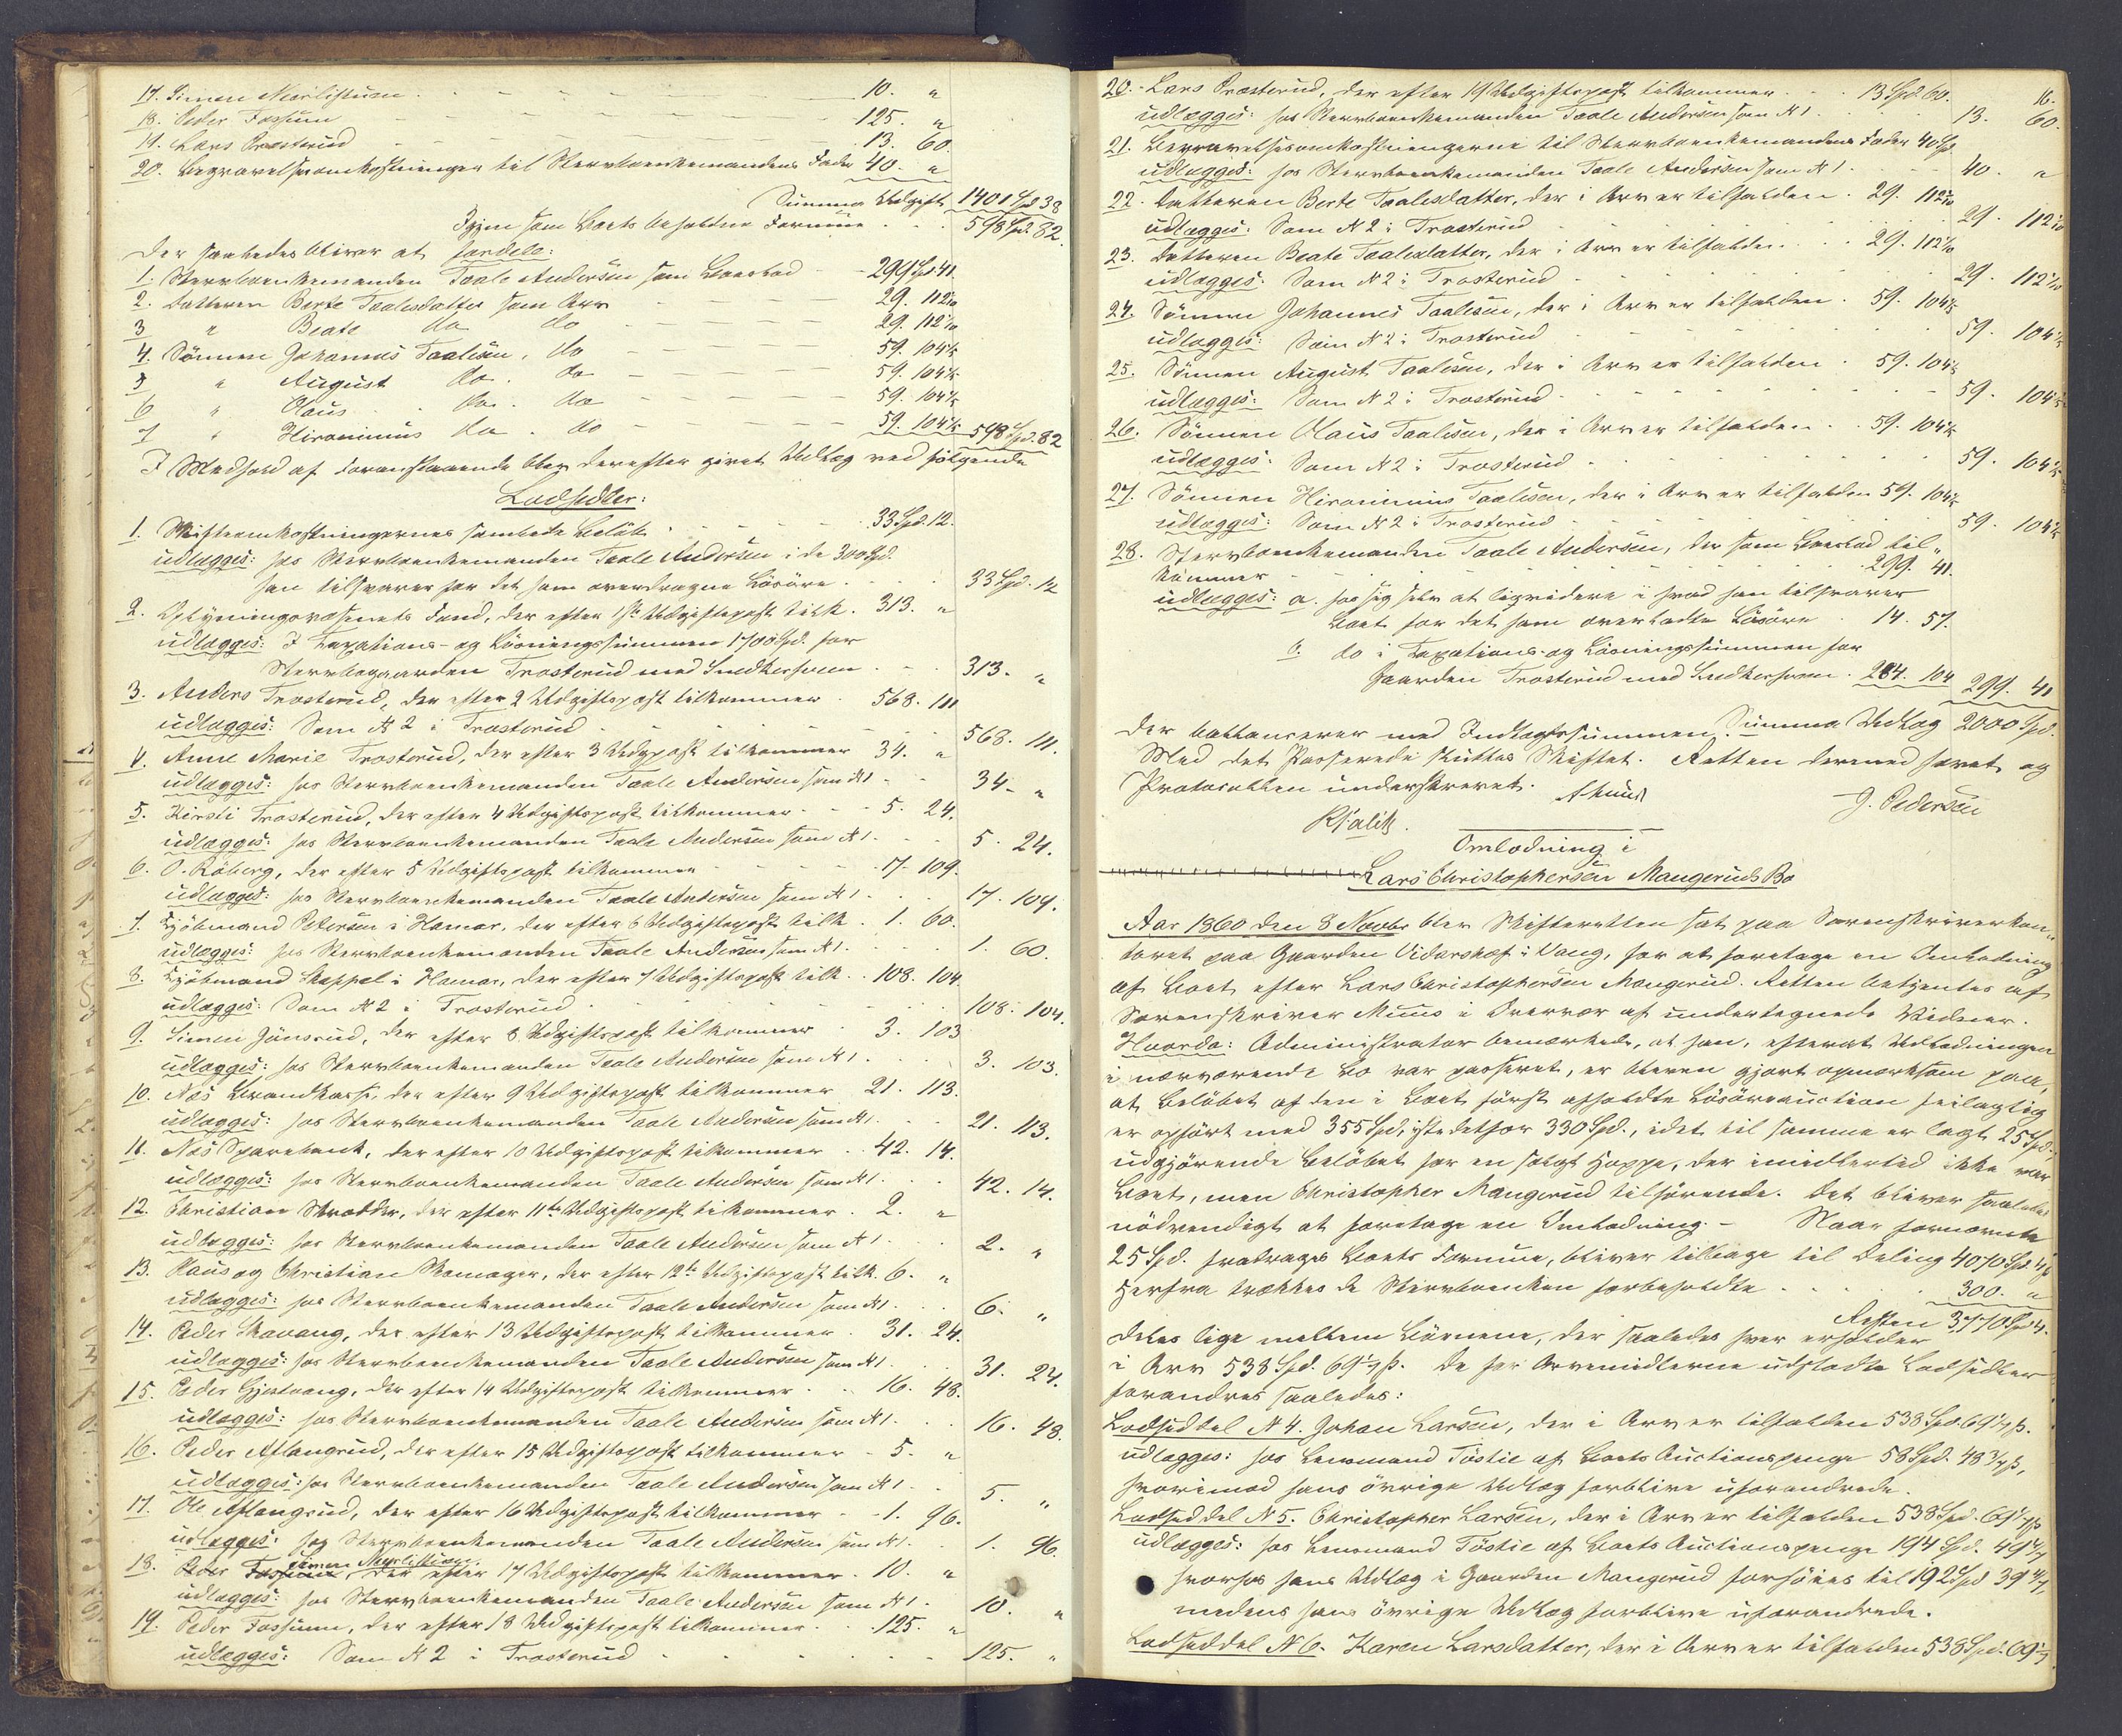 17. Simen Mærlistuen . - - - - - - 10. "
18. Peder Fossum - - - - - - 125. "
19. Lars Præsterud - - - - - - 13. 60.
20. Begravelsesomkostninger til Stervboenkemandens Fader 40. "
Summa Udgift 1401 Spd 38
Igjen som Boets beholdne Formue . . . 598 Spd. 82.
der saaledes bliver at fordele:
1. Stervboenkemanden Taale Andersen som Boeslod - - 299 Spd 41.
2. Datteren Berte Taalesdatter som Arv - - - 29. 112 1/10
3 " Beate do do - - - - 29. 112 1/10
4. Sönnen Johannes Taalesen, do - - - - 59. 104 1/5
5 " August do. do - - - - 59. 104 1/5
6 " Olaus . do. do - - - - 59. 104 1/5
7 " Hironimus do . do - - - - 59. 104 1/5 598 Spd. 82
I Medhold af Foranstaaende blev derefter givet Udlæg ved følgende
Lodsedler:
1. Skifteomkostningernes samlede Beløb . - - - 33 Spd. 12.
udlægges: hos Stervboenkemanden Taale Andersen i de 300 Spd.
han tilsvarer for det ham overdragne Lösöre . . . 33 Spd. 12
2. Oplysningsvæsenets Fond, der efter 1ste Udgiftspost tilk. 313. "
udlægges: I Taxations- og Lösningssummen 1700 Spd. for
Stervbogaarden Trosterud med Snedkersveen . - - 313. "
3. Anders Trosterud, der efter 2 Udgiftspost tilkommer . 568. 111
udlægges: Som N 2 i Trosterud - - - - 568. 111.
4. Anne Marie Trosterud, der efter 3 Udgpost tilkommer 34. "
udlægges: hos Stervboenkemanden Taale Andersen som N 1 - - 34 - "
5. Kirsti Trosterud, der efter 4 Udgiftspost tilkommer - - - 5. 24.
udlægges: hos Stervboenkemanden Taale Andersen som N 1. - - 5. 24.
6. O. Röberg, der efter 5 Udgiftspost tilkommer - - - 17. 109.
udlægges: hos Stervboenkemanden Taale Andersen som N 1 . . . 17. 109.
7. Kjöbmand Petersen i Hamar, der efter 6 Udgiftspost tilk. 1. 60.
udlægges: hos Stervboenkemanden Taale Andersen som N 1. . . 1. 60.
8. Kjöbmand Skappel i Hamar, der efter 7 Udgiftspost tilk. . 108. 104.
udlægges: Som N 2 i Trosterud . . . . 108. 104.
9. Simen Jönsrud, der efter 8 Udgiftspost tilkommer . 3. 103
udlægges: hos Stervboenkemanden Taale Andersen som N 1 . . . 3. 103.
10. Næs Brandkasse, der efter 9 Udgiftspost tilkommer 21. 113.
udlægges: hos Stervboenkemanden Taale Andersen som N 1. . . 21. 113.
11. Næs Sparebank, der efter 10 Udgiftspost tilkommer . . 42. 14.
udlægges: hos Stervboenkemanden Taale Andersen som N 1. . . 42. 14.
12. Christian Skrædder, der efter 11te Udgiftspost tilkommer . 2. "
udlægges: hos Stervboenkemanden Taale Andersen som N 1 . . 2. "
13. Klaus og Christian Skomager, der efter 12te Udgiftspost tilk. 6. "
udlægges: hos Stervboenkemanden Taale Andersen som N 1. . 6. "
14. Peder Skavang, der efter 13 Udgiftspost tilkommer . 31. 24.
udlægges: hos Stervboenkemanden Taale Andersen som N 1. . . 31. 24.
15. Peder Gjestvang, der efter 14 Udgiftspost tilkommer . . 16. 48.
udlægges: hos Stervboenkemanden Taale Andersen som N 1. . . 16. 48.
16. Peder Aflangrud, der efter 15 Udgiftspost tilkommer - 5. "
udlægges: hos Stervboenkemanden Taale Andersen som N 1 . . 5. "
17. Ole Aflangrud, der efter 16 Udgiftspost tilkommer - - 1. 96.
udlægges: hos Stervboenkemanden Taale Andersen som N 1. . 1. 96.
Simen Mærlistuen
18. Peder Fossum, der efter 17 Udgiftspost tilkommer . 10. "
udlægges: hos Stervboenkemanden Taale Andersen som N 1 . 10. "
19. Peder Fossum, der efter 18 Udgiftspost tilkommer . . 125. "
udlægges: Som N 2 i Trosterud . . . . 125. "
16.
20. Lars Præsterud, der efter 19 Udgiftspost tilkommer . . . 13 Spd. 60.
udlægges: hos Stervboenkemanden Taale Andersen som N 1 . . . 13. 60.
21. Begravelsesomkostningerne til Stervboenkemandens Fader 40 Spd
udlægges: hos Stervboenkemanden Taale Andersen som N 1. . . 40. "
22. Datteren Berte Taalesdatter, der i Arv er tilfalden . 29. 112 1/10
udlægges: Som N 2 i Trosterud . . . . 29. 112 1/10
23. Datteren Beate Taalesdatter, der i Arv er tilfalden . . 29. 112 1/10
udlægges: Som N 2 i Trosterud . . . . 29. 112 1/10
24. Sönnen Johannes Taalesen, der i Arv er tilfalden . 59. 104 1/5
udlægges: Som N 2 i Trosterud . . . . 59. 104 1/5
25. Sönnen August Taalesen, der i Arv er tilfalden . 59. 104 1/5
udlægges: Som N 2 i Trosterud . . . . 59. 104 1/5
26. Sönnen Olaus Taalesen, der i Arv er tilfalden . . 59. 104 1/5
udlægges: Som N 2 i Trosterud . . . . 59. 104 1/5
27. Sönnen Hironimus Taalesen, der i Arv er tilfalden 59. 104 1/5
udlægges: Som N 2 i Trosterud . . . . 59. 104 1/5
28. Stervboenkemanden Taale Andersen, der som Boeslod til-
kommer . . . . 299. 41.
udlægges: a. hos sig selv at liqvidere i hvad han tilsvarer
Boet for det ham overladte Lösöre . 14. 57.
b. do i Taxations- og Lösningssummen for
Gaarden Trosterud med Snedkersveen . 284. 104 299. 41
Summa Udlæg 2000 Spd.
der ballancerer med Indtægtssummen.
Med det Passerede sluttes Skiftet. Retten dermed hævet og
Protocollen underskrevet.
J. Pedersen
Omlodning i
Lars Christophersen Mangeruds Bo
Aar 1860 den 8 Novbr blev Skifteretten sat paa Sorenskriverkon-
toret paa Gaarden Vidarshof i Vang, for at foretage en Omlodning
af Boet efter Lars Christophersen Mangerud. Retten betjentes af
Sorenskriver Muus i Overvær af undertegnede Vidner.
Hvorda: Administrator bemærkede, at han, efterat Udlodningen
i nærværende Bo var passeret, er bleven gjort opmærksom paa,
at Beløbet af den i Boet först afholdte Lösöreauction feilagtig
er opfört med 355 Spd, istedetfor 330 Spd., idet til samme er lagt 25 Spd.
udgjörende Belöbet for en solgt Hoppe, der imidlertid ikke var
Boet, men Christopher Mangerud tilhörende. Det bliver saaledes
nödvendigt at foretage en Omlodning. - Naar fornævnte
25 Spd. fradrages Boets Formue, bliver tilbage til Deling 4070 Spd. 4 ß
Herfra trækkes de Stervboenken forbeholdte . . . 300. "
Resten 3770 Spd 4.
deles lige mellem Börnene, der saaledes hver erholder
i Arv 538 Spd. 69 1/7 ß. De for Arvemidlerne udstædte Lodsedler
forandres saaledes:
Lodseddel N 4. Johan Larsen, der i Arv er tilfalden 538 Spd. 69 1/7 ß.
udlægges: hos Lensmand Töstie af Boets Auctionspenge 58 Spd. 48 3/7 ß,
hvorimod hans övrige Udlæg forblive uforandrede.
Lodseddel N 5. Christopher Larsen, der i Arv er tilfalden 538 Spd. 69 1/7 ß
udlægges: hos Lensmand Töstie af Boets Auctionspenge 194 Spd. 49 4/7
hvorhos hans Udlæg i Gaarden Mangerud forhöies til 192 Spd 39 4/7,
medens hans övrige Udlæg forblive uforandrede.
Lodseddel N 6. Karen Larsdatter, der i Arv er tilfalden 538 Spd. 69 1/7